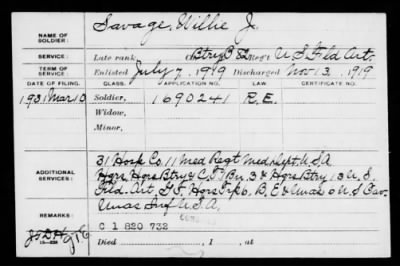 NAME OF SOLDIER: Savage, Willie J.
SERVICE: Late rank, Btry B 82 Reg't U S Fld Art.
TERM OF SERVICE: Enlisted July 7, 1919 Discharged Nov 13, 1919
DATE OF FILING. CLASS. APPLICATION NO. LAW. CERTIFICATE NO.
1931 Mar 10 Soldier, 1690241 R.E.
Widow,
Minor,
ADDITIONAL SERVICES:
31 Hosp Co. 11 Med Regt Med Dept. U S A
Hqrs Hqrs Btry & C.T. Bn. 3 & Hqrs Btry 13 U.S.
Fld. Art, Hqrs Trp 6, B, E & Unas U S Cav.
Unas Inf U.S.A.
REMARKS:
C 1 820 732
Died , 1 , at